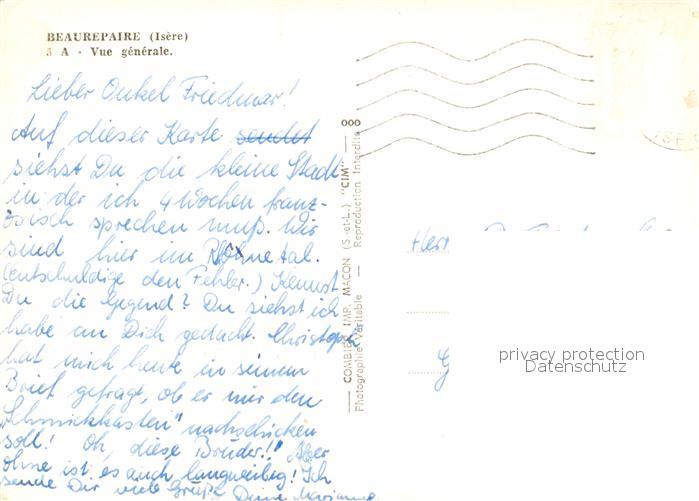 BEAUREPAIRE (Isère)
5 A - Vue générale.
Lieber Onkel Friedmar!
Auf dieser Karte sendet
siehst Du die kleine Stadt
in der ich 4 Wochen franz-
ösisch sprechen muß. Wir
sind hier im Rhônetal.
(entschuldige den Fehler.) Kennst
Du die Gegend? Du siehst ich
habe an Dich gedacht. Christoph
hat mich heute in seinem
Brief gefragt, ob er mir den
"Schminkkasten" nachschicken
soll! Oh, diese Brüder!! Aber
ohne ist es auch langweilig! Ich
sende Dir viele Grüße Deine Marianne
COMBIER IMP. MACON (S.-et-L.) "CIM"
Photographie Véritable — Reproduction Interdite
Herr
G
privacy protection
Datenschutz